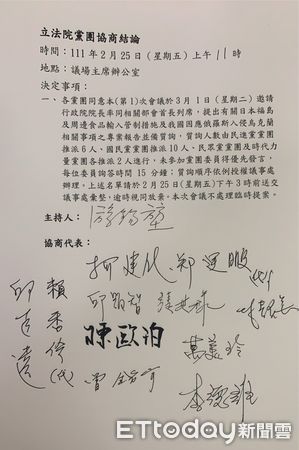 立法院黨團協商結論
時間：111年2月25日（星期五）上午11時
地點：議場主席辦公室
決定事項：
一、各黨團同意本(第1)次會議於3月1日（星期二）邀請
行政院院長率同相關部會首長列席，提出有關日本福島
及周邊食品輸入管制措施及我國因應俄羅斯入侵烏克蘭
相關事項之專案報告並備質詢，質詢人數由民進黨黨團
推派6人、國民黨黨團推派10人、民眾黨黨團及時代力
量黨團各推派2人進行，未參加黨團委員得優先發言，
每位委員詢答時間15分鐘；質詢順序依例授權議事處
辦理。上述名單請於2月25日（星期五）下午3時前送交
議事處彙整，逾時視同放棄。本次會議不處理臨時提案。
主持人：游錫堃
協商代表：
柯建銘 鄭運鵬
邱顯智
陳歐珀
萬美玲
賴香伶
邱臣遠
李德維
ETtoday新聞雲